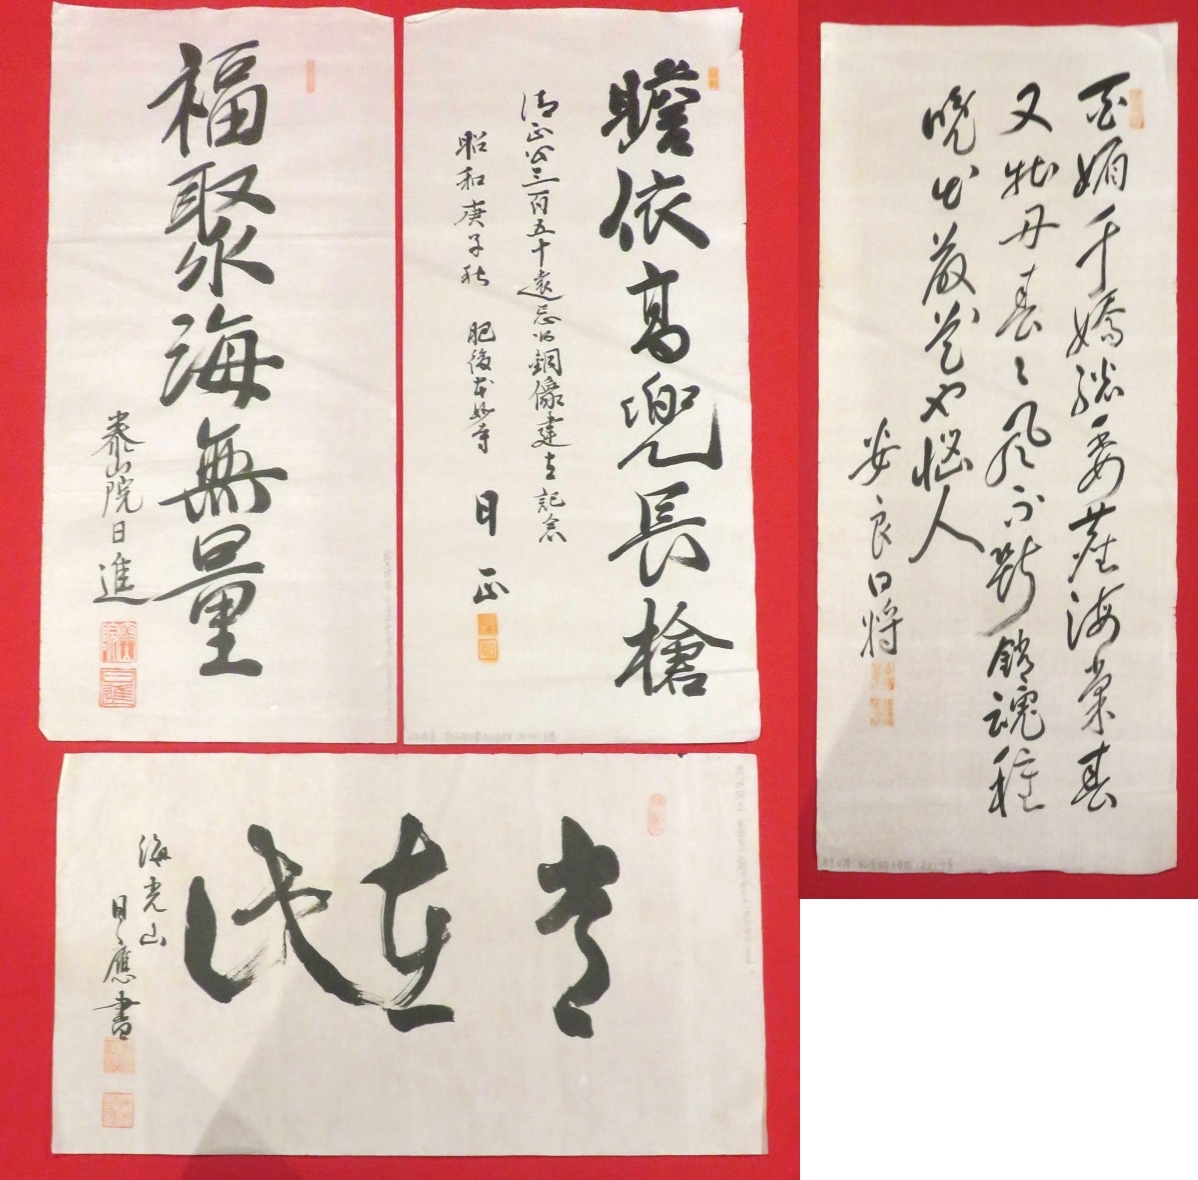 福聚海無量
泰山院日進
瞻依高兜長槍
清正公三百五十遠忌 銅像建立記念
昭和庚子秋 肥後本妙寺
日正
百媚千嬌 海棠春
又牡丹春々風不断銷魂種
晩出 悩人
安良日将
常在此
海光山
日應書